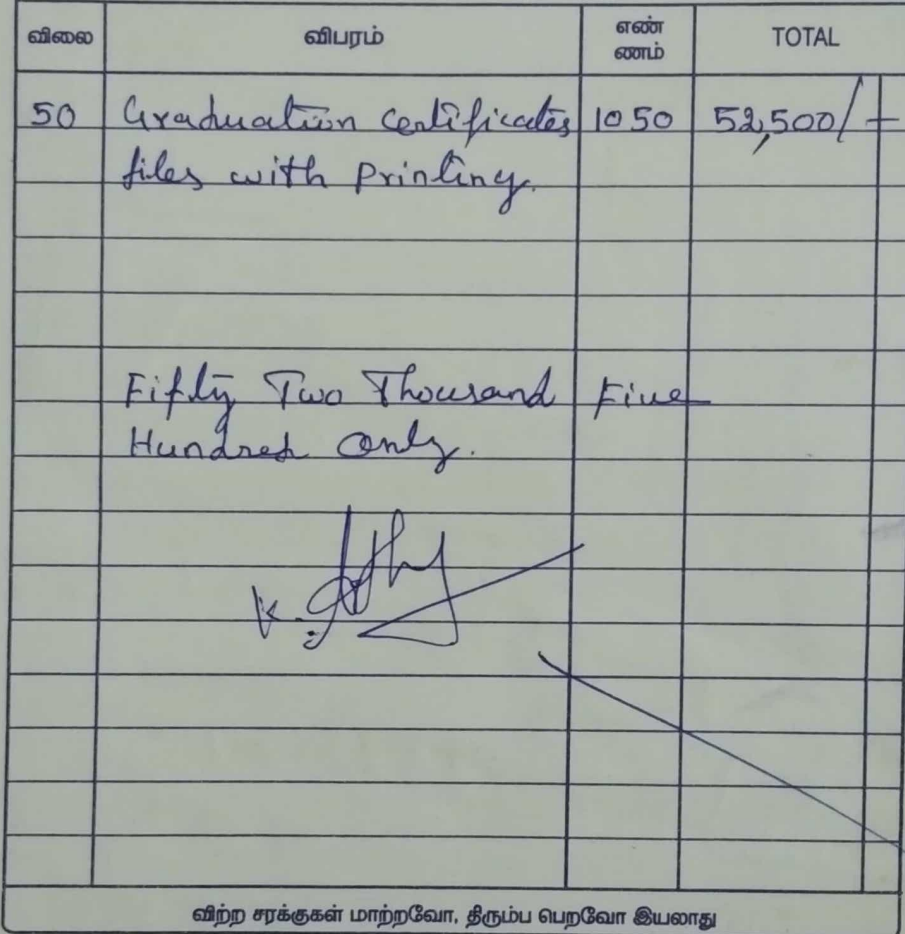 விலை விபரம் எண் ணம் TOTAL
50 Graduation Certificates 1050 52,500/-
files with Printing.
Fifty Two Thousand Five
Hundred Only.
K.
விற்ற சரக்குகள் மாற்றவோ, திரும்ப பெறவோ இயலாது